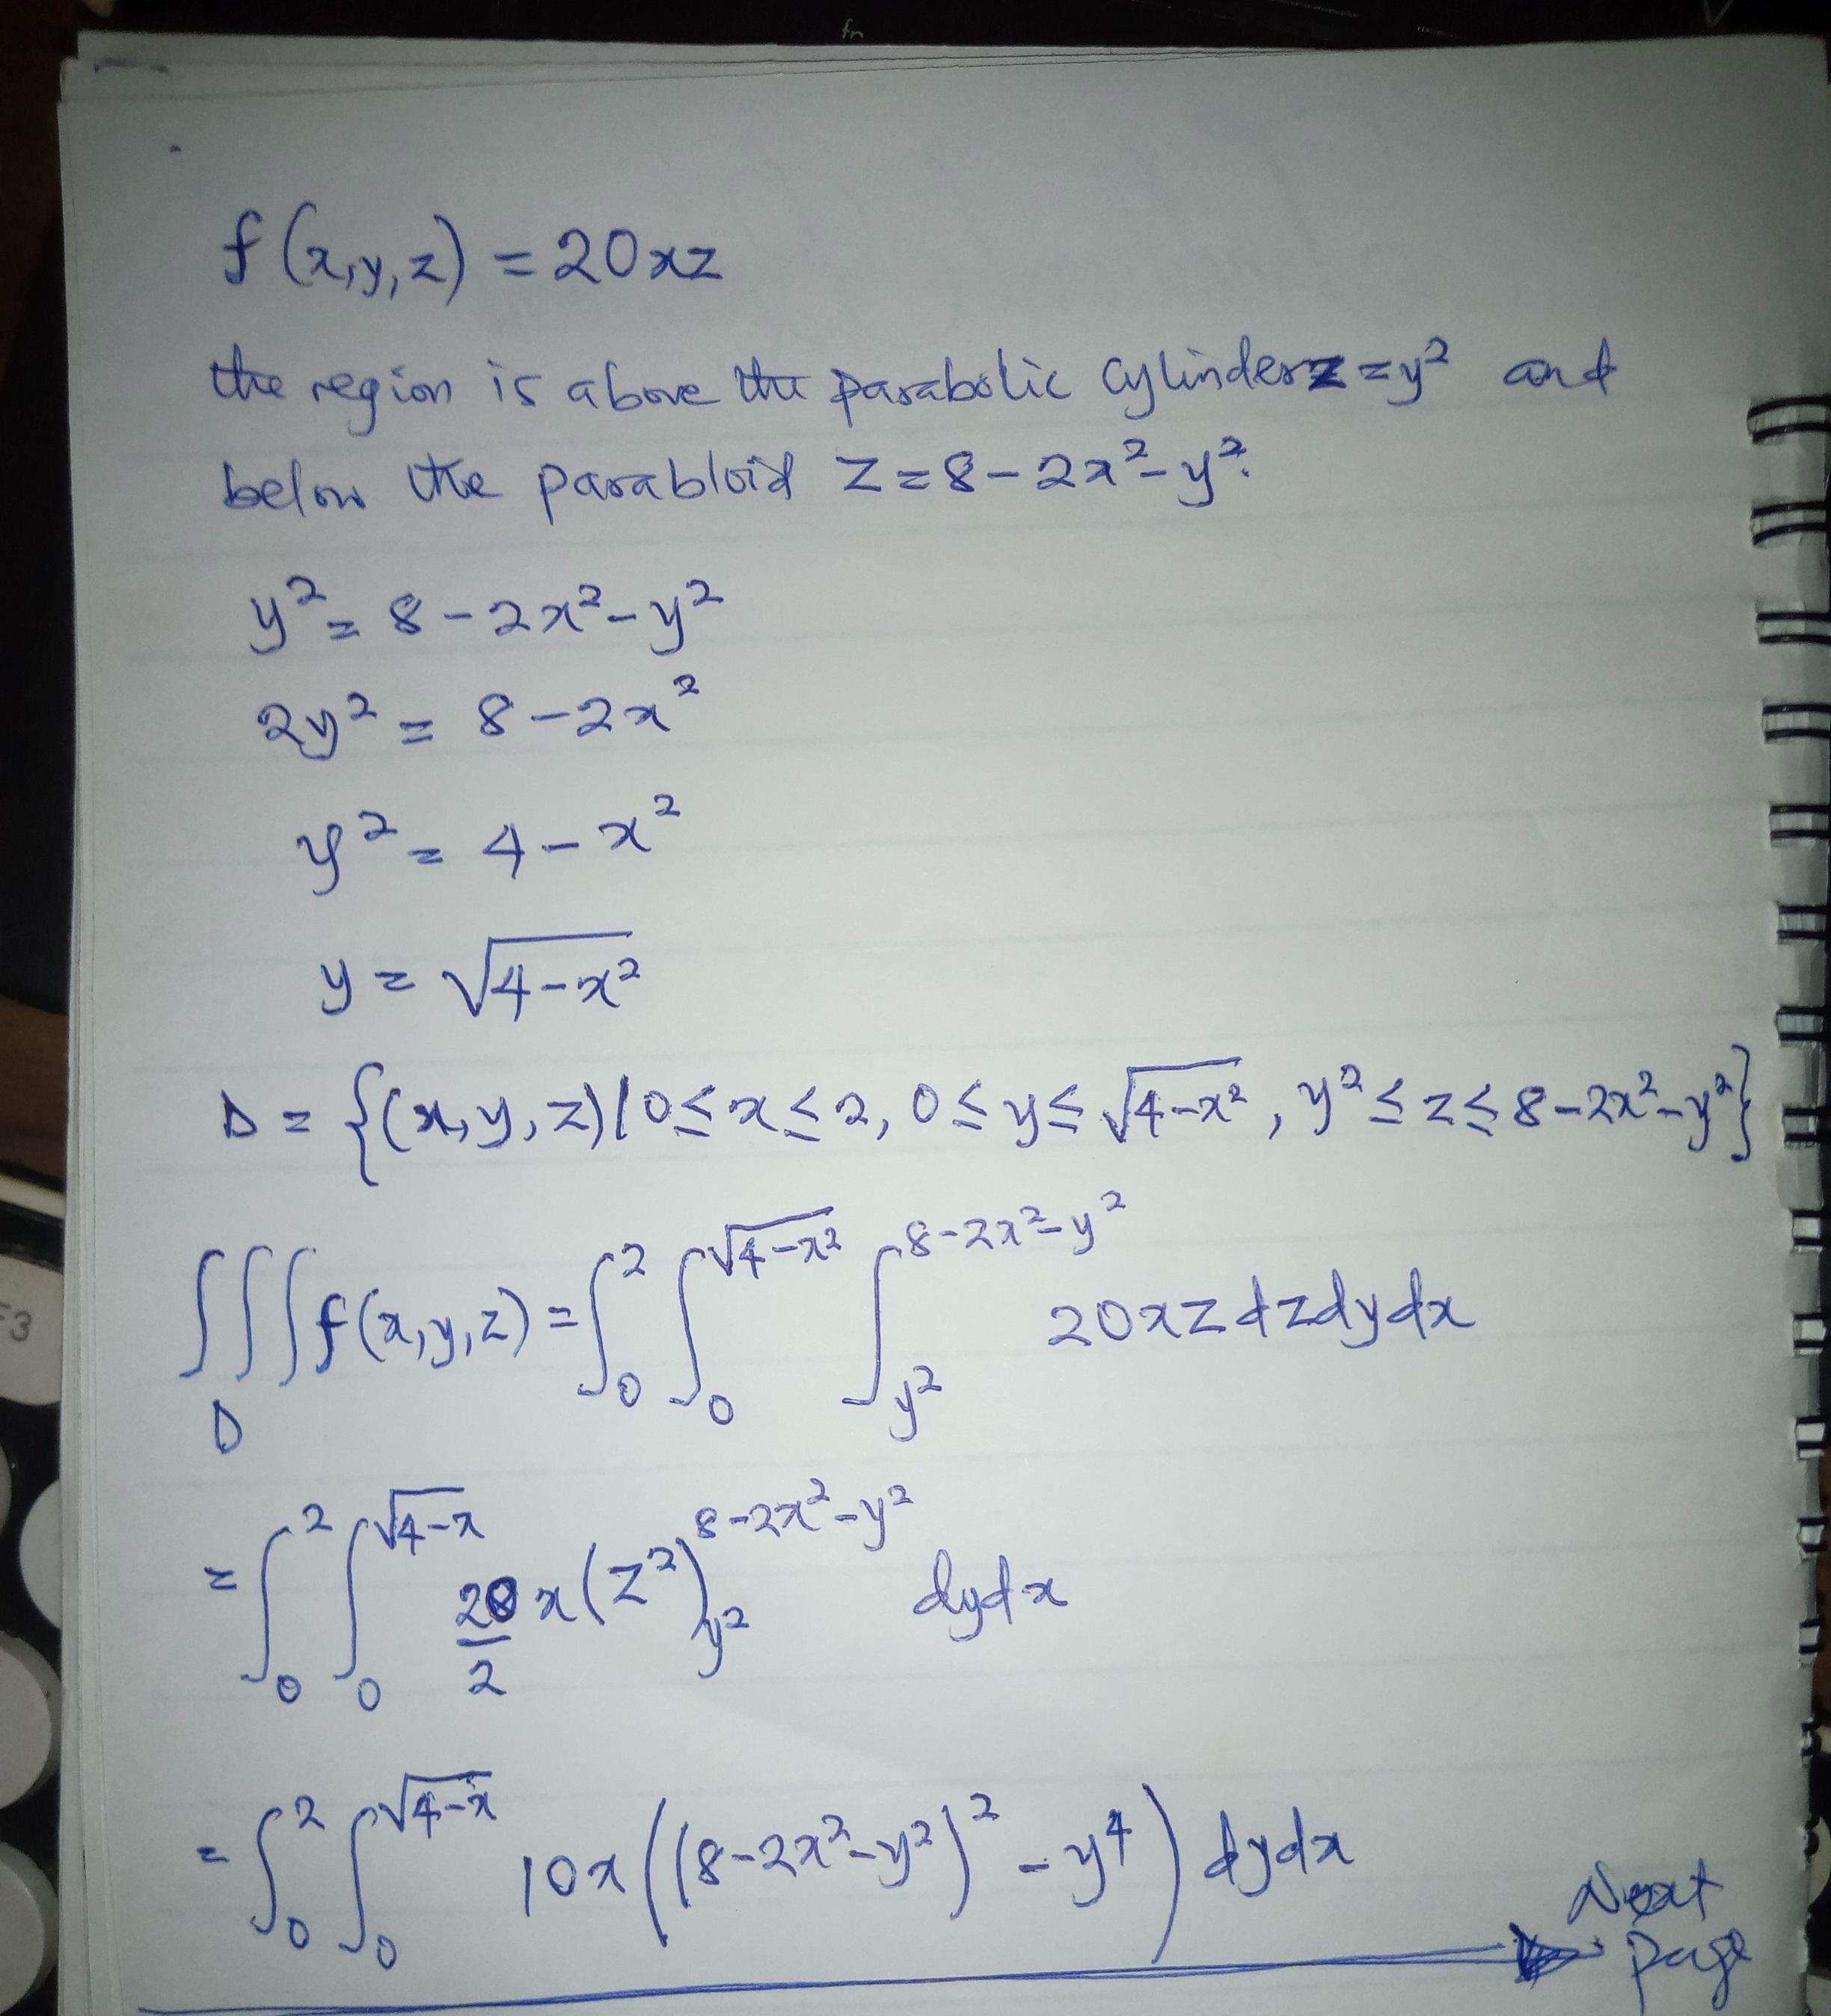 f(x,y,z) = 20xz
the region is above the parabolic cylinder z = y² and
below the parabloid z = 8 - 2x² - y².
y² = 8 - 2x² - y²
2y² = 8 - 2x²
y² = 4 - x²
y = √(4-x²)
D = {(x,y,z) | 0 ≤ x ≤ 2, 0 ≤ y ≤ √(4-x²), y² ≤ z ≤ 8-2x²-y²}
∭_D f(x,y,z) = ∫₀² ∫₀^√(4-x²) ∫_{y²}^{8-2x²-y²} 20xz dz dy dx
= ∫₀² ∫₀^√(4-x) 20/2 x (z²)_{y²}^{8-2x²-y²} dy dx
= ∫₀² ∫₀^√(4-x) 10x ((8-2x²-y²)² - y⁴) dy dx
Next
page